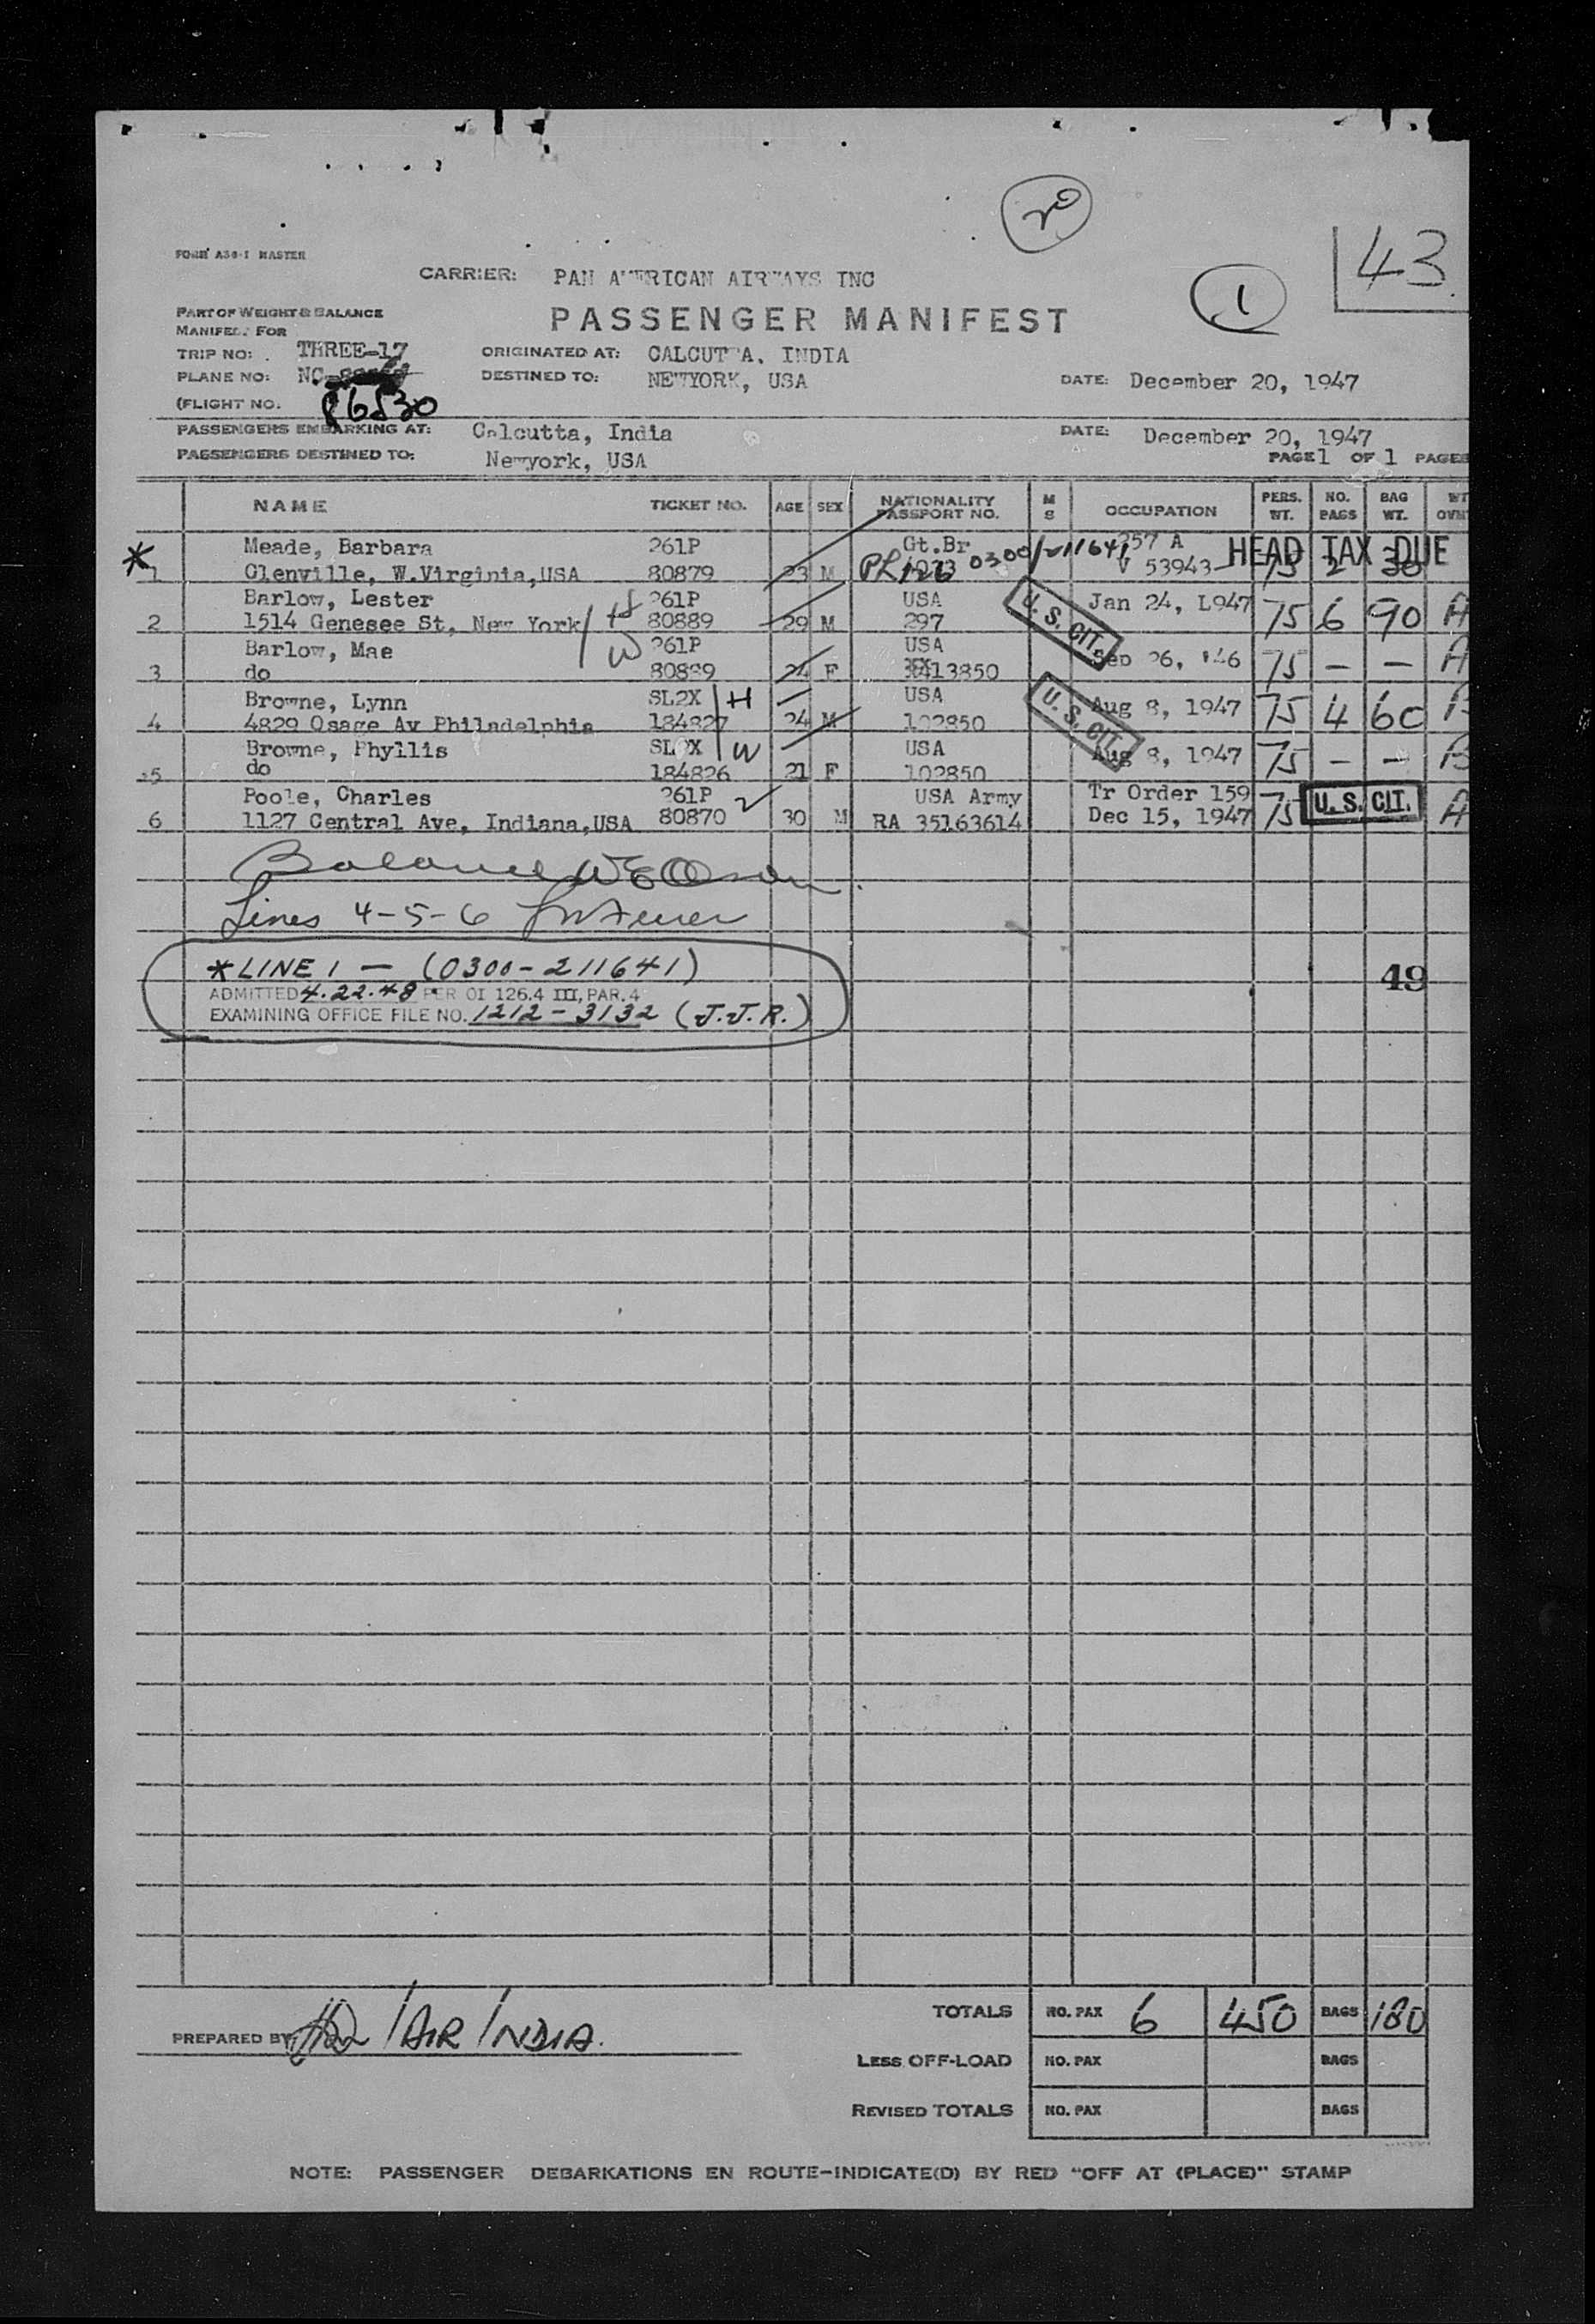 2
43
FORM A30-1 MASTER
CARRIER: PAN AMERICAN AIRWAYS INC
1
PART OF WEIGHT & BALANCE
PASSENGER MANIFEST
MANIFEST FOR
TRIP NO: THREE-17 ORIGINATED AT: CALCUTTA, INDIA
PLANE NO: NC DESTINED TO: NEWYORK, USA DATE: December 20, 1947
(FLIGHT NO. 86530
PASSENGERS EMBARKING AT: Calcutta, India DATE: December 20, 1947
PASSENGERS DESTINED TO: Newyork, USA PAGE 1 OF 1 PAGES
NAME TICKET NO. AGE SEX NATIONALITY PASSPORT NO. M S OCCUPATION PERS. WT. NO. PAGS BAG WT. WT
* Meade, Barbara 261P Gt.Br 0300/211641 257 A HEAD TAX DUE
1 Glenville, W.Virginia,USA 80879 23 M V 53943 75 2 30
Barlow, Lester H 261P USA U. S. CIT. Jan 24, L947
2 1514 Genesee St, New York 80889 29 M 297 75 6 90 A
Barlow, Mae W 261P USA Sep 26, '46
3 do 80889 24 F 413850 75 - - A
Browne, Lynn SL2X H USA U. S. CIT. Aug 8, 1947
4 4829 Osage Av Philadelphia 184827 24 M 102850 75 4 60
Browne, Phyllis SL2X W USA Aug 8, 1947
5 do 184826 21 F 102850 75 - -
Poole, Charles 261P USA Army Tr Order 159 U. S. CIT.
6 1127 Central Ave, Indiana,USA 80870 30 M RA 35163614 Dec 15, 1947 75 A
Balance
Lines 4-5-6
* LINE 1 — (0300-211641)
49
ADMITTED 4.22.48 PER OI 126.4 III, PAR. 4
EXAMINING OFFICE FILE NO. 1212-3132 (J.J.R.)
TOTALS NO. PAX 6 450 BAGS 180
PREPARED BY / AIR INDIA.
LESS OFF-LOAD NO. PAX BAGS
REVISED TOTALS NO. PAX BAGS
NOTE: PASSENGER DEBARKATIONS EN ROUTE-INDICATE(D) BY RED "OFF AT (PLACE)" STAMP